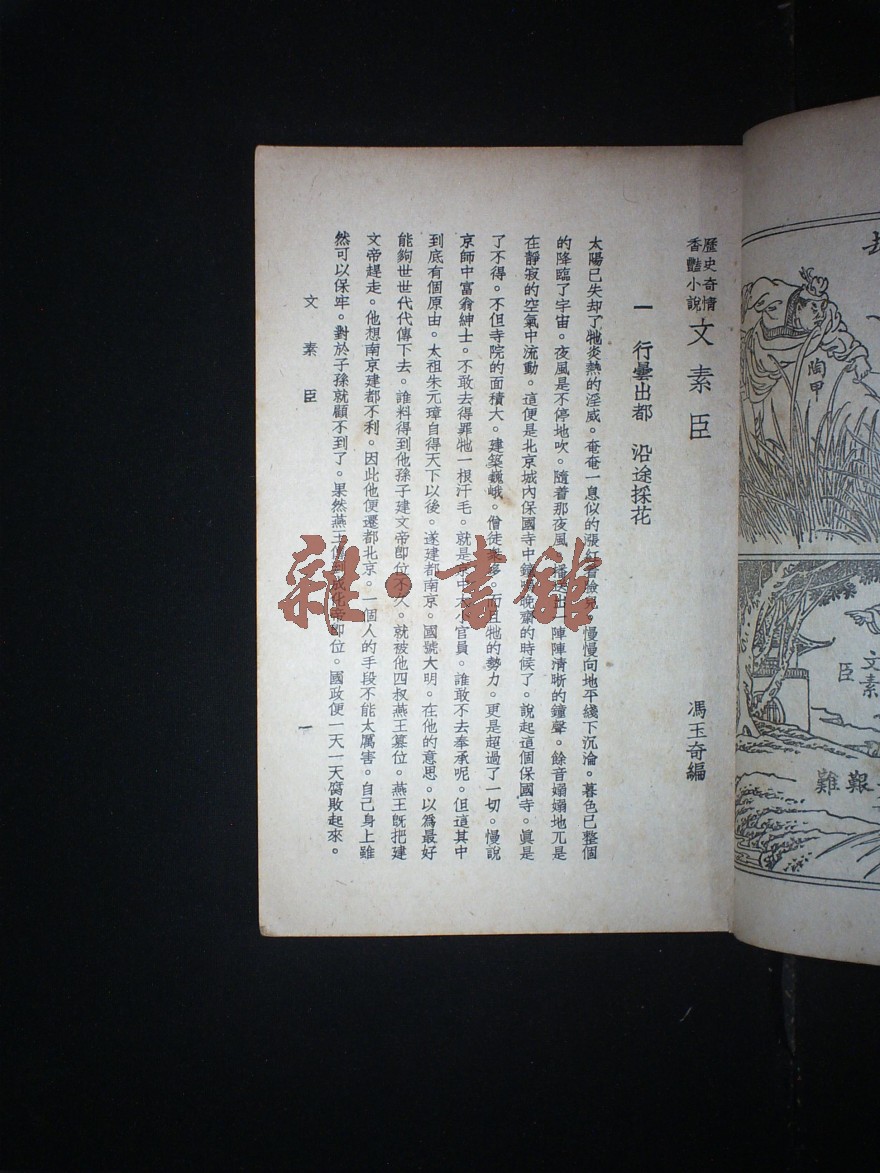 歷史奇情
香豔小說
文素臣
馮玉奇編
一 行曇出都 沿途採花
太陽已失却了牠炎熱的淫威。奄奄一息似的張紅着臉兒。慢慢向地平綫下沉淪。暮色已整個
的降臨了宇宙。夜風是不停地吹。隨着那夜風。播送出一陣陣清晰的鐘聲。餘音嫋嫋地兀是
在靜寂的空氣中流動。這便是北京城內保國寺中鐘鳴晚齋的時候了。說起這個保國寺。眞是
了不得。不但寺院的面積大。建築巍峨。僧徒衆多。而且牠的勢力。更是超過了一切。慢說
京師中富翁紳士。不敢去得罪牠一根汗毛。就是朝中大小官員。誰敢不去奉承呢。但這其中
到底有個原由。太祖朱元璋自得天下以後。遂建都南京。國號大明。在他的意思。以爲最好
能夠世世代代傳下去。誰料得到他孫子建文帝卽位不久。就被他四叔燕王篡位。燕王旣把建
文帝趕走。他想南京建都不利。因此他便遷都北京。一個人的手段不能太厲害。自己身上雖
然可以保牢。對於子孫就顧不到了。果然燕王傳到成化帝卽位。國政便一天一天腐敗起來。
文素臣
一
陶甲
文素
臣
艱
難
雜·書館